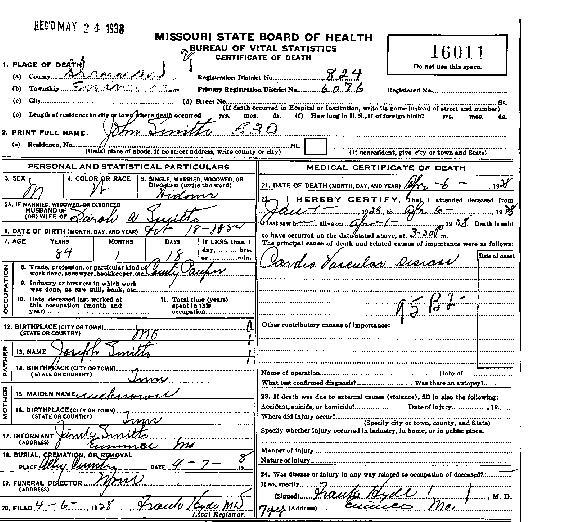 REC'D MAY 24 1938
MISSOURI STATE BOARD OF HEALTH
BUREAU OF VITAL STATISTICS
CERTIFICATE OF DEATH
16011
Do not use this space.
1. PLACE OF DEATH
(a) County Registration District No. 824
(b) Township Primary Registration District No. 6076 Registered No.
(c) City (d) Street No. St.
(If death occurred in Hospital or Institution, write its name instead of street and number)
(e) Length of residence in city or town where death occurred yrs. mos. ds. (f) How long in U.S., if of foreign birth? yrs. mos. ds.
2. PRINT FULL NAME John Smith 530
(a) Residence, No. St.
(Usual place of abode. If no street address, write county or city) (If nonresident, give city or town and State)
PERSONAL AND STATISTICAL PARTICULARS
3. SEX M
4. COLOR OR RACE W
5. SINGLE, MARRIED, WIDOWED, OR DIVORCED (write the word)
5A. IF MARRIED, WIDOWED, OR DIVORCED
HUSBAND OF
(OR) WIFE OF Sarah Smith
6. DATE OF BIRTH (MONTH, DAY, AND YEAR)
7. AGE YEARS MONTHS DAYS If LESS than 1
84 1 18
OCCUPATION
8. Trade, profession, or particular kind of work done, sawyer, bookkeeper, etc. County Pauper
9. Industry or business in which work was done, as saw mill, bank, etc.
10. Date deceased last worked at this occupation (month and year)
11. Total time (years) spent in this occupation
12. BIRTHPLACE (CITY OR TOWN)
(STATE OR COUNTRY) Mo
FATHER
13. NAME Joseph Smith
14. BIRTHPLACE (CITY OR TOWN)
(STATE OR COUNTRY) Tenn
MOTHER
15. MAIDEN NAME unknown
16. BIRTHPLACE (CITY OR TOWN)
(STATE OR COUNTRY) Tenn
17. INFORMANT Smith
(ADDRESS) Eminence Mo
18. BURIAL, CREMATION, OR REMOVAL
PLACE DATE 4-7- 8
19. FUNERAL DIRECTOR None
(ADDRESS)
20. FILED 4-6- 1938 Frank Hyde MD
Local Registrar.
MEDICAL CERTIFICATE OF DEATH
21. DATE OF DEATH (MONTH, DAY, AND YEAR) Apr -6- 1938
22. I HEREBY CERTIFY, That I attended deceased from
Jan-1- 1938, to Apr 6- 1938
I last saw h alive on Apr-1- 1938 Death is said
to have occurred on the date stated above, at
The principal causes of death and related causes of importance were as follows:
Date of onset
Cardio Vascular Disease
95B2
Other contributory causes of importance:
Name of operation Date of
What test confirmed diagnosis? Was there an autopsy?
23. If death was due to external causes (violence), fill in also the following:
Accident, suicide, or homicide? Date of injury 19
Where did injury occur?
(Specify city or town, county, and State)
Specify whether injury occurred in industry, in home, or in public place.
Manner of injury
Nature of injury
24. Was disease or injury in any way related to occupation of deceased?
If so, specify
(Signed) Frank Hyde , M. D.
(Address) Eminence Mo.